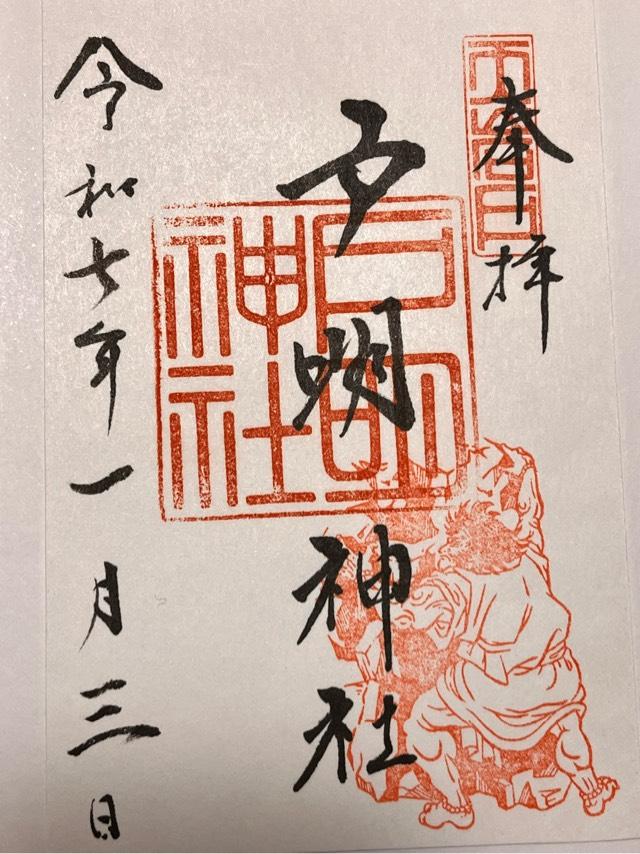 奉拝
戸明神社
令和七年一月三日
戸明
神社